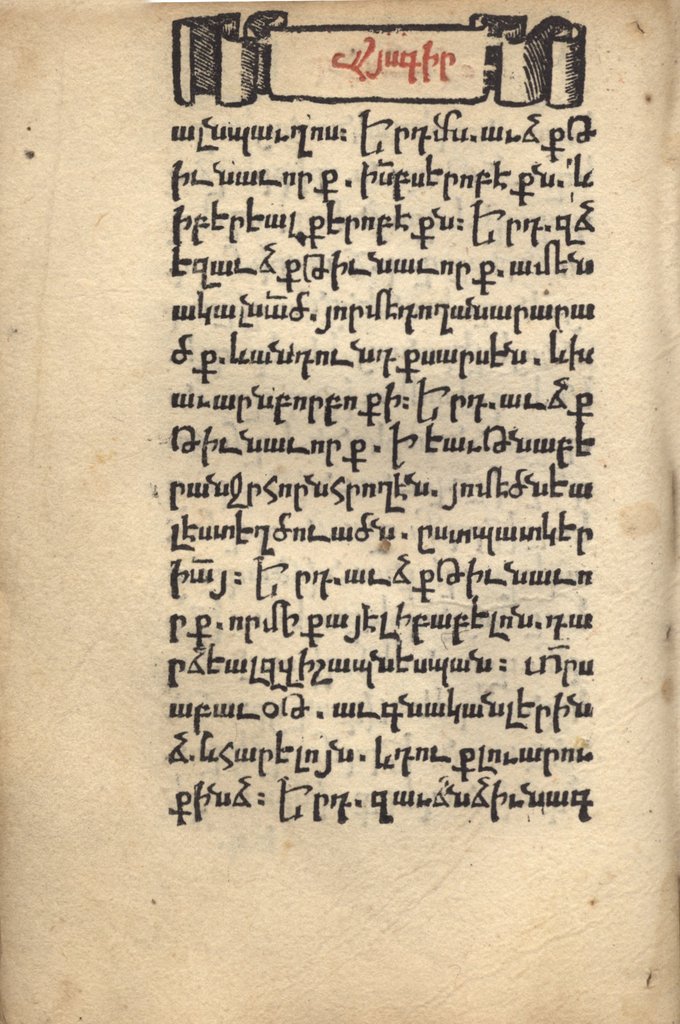 Հյագիր
ալսպաւղոս։ Երդմն. աւձ քթ
իւնաւոր ք. ի մն քսերոբէ քն. և
իբերեալ քերոբէ քն։ Երդ. զձ
եզաւձ քթիւնաւոր ք. ամեն
ակալնած. յորմեդողանարարա
ծ ք. և անդունդ քսարսեն. և խ
աւարնբորբո քի։ Երդ. աւձ ք
թիւնաւոր ք. ի եաւթնաբե
րանջրհորնհրողէն. յոմեծնեա
լեստեղծուածն. ըստպատկեր
իայ։ Երդ. աւձ քթիւնաւո
ր ք. որմի քայելիբաբելոն. դա
րձեալզվիշապնեսպան։ տրս
աբաւօթ. աւգնականլերին
ձ. և հարելոյն. և դու քլուարու
քինձ։ Երդ. զաւձնձիւնագ